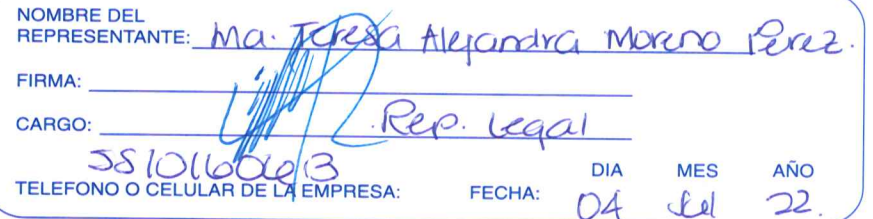 NOMBRE DEL
REPRESENTANTE: Ma. Teresa Alejandra Moreno Pérez.
FIRMA:
CARGO: Rep. Legal
5510160613
DIA MES AÑO
TELEFONO O CELULAR DE LA EMPRESA: FECHA: 04 Jul 22.